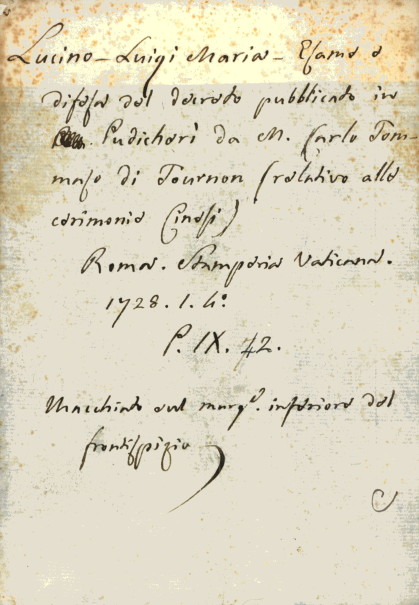 Lucino - Luigi Maria - Esame e
difesa del decreto pubblicato in
Pudicherì da M. Carlo Tom-
maso di Tournon (relativo alle
cerimonie Cinesi)
Roma. Stamperia Vaticana.
1728. 1. 4º
P. IX. 42.
Macchiato sul marge. inferiore del
frontispizio